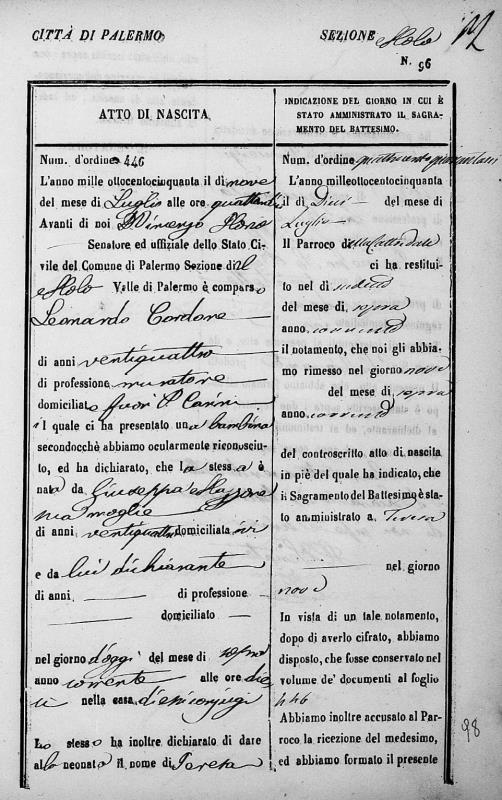 CITTÀ DI PALERMO
SEZIONE Molo
N. 96
ATTO DI NASCITA
Num. d'ordine 446
L'anno mille ottocentocinquanta il dì nove
del mese di Luglio alle ore
Avanti di noi Vincenzo Florio
Senatore ed uffiziale dello Stato Ci-
vile del Comune di Palermo Sezione di il
Molo Valle di Palermo è comparso
Leonardo Cardone
di anni ventiquattro
di professione muratore
domiciliato fuori P. Carini
il quale ci ha presentato una bambina
secondocchè abbiamo ocularmente riconosciu-
to, ed ha dichiarato, che la stessa è
nata da Giuseppa
sua moglie
di anni ventiquattro domiciliata ivi
e da lui dichiarante
di anni — di professione —
domiciliato —
nel giorno d'oggi del mese di sopra
anno corrente alle ore die-
ci nella casa di essi coniugi
Lo stesso ha inoltre dichiarato di dare
alla neonata il nome di Teresa
INDICAZIONE DEL GIORNO IN CUI È
STATO AMMINISTRATO IL SAGRA-
MENTO DEL BATTESIMO.
Num. d'ordine
L'anno milleottocentocinquanta
il dì Dieci del mese di
Luglio
Il Parroco della Cattedrale
ci ha restitui-
to nel dì
del mese di sopra
anno
il notamento, che noi gli abbia-
mo rimesso nel giorno nove
del mese di sopra
anno
del controscritto atto di nascita
in piè del quale ha indicato, che
il Sagramento del Battesimo è sta-
to amministrato a Teresa
— nel giorno
nove
In vista di un tale notamento,
dopo di averlo cifrato, abbiamo
disposto, che fosse conservato nel
volume de' documenti al foglio
446
Abbiamo inoltre accusato al Par-
roco la ricezione del medesimo,
ed abbiamo formato il presente
98